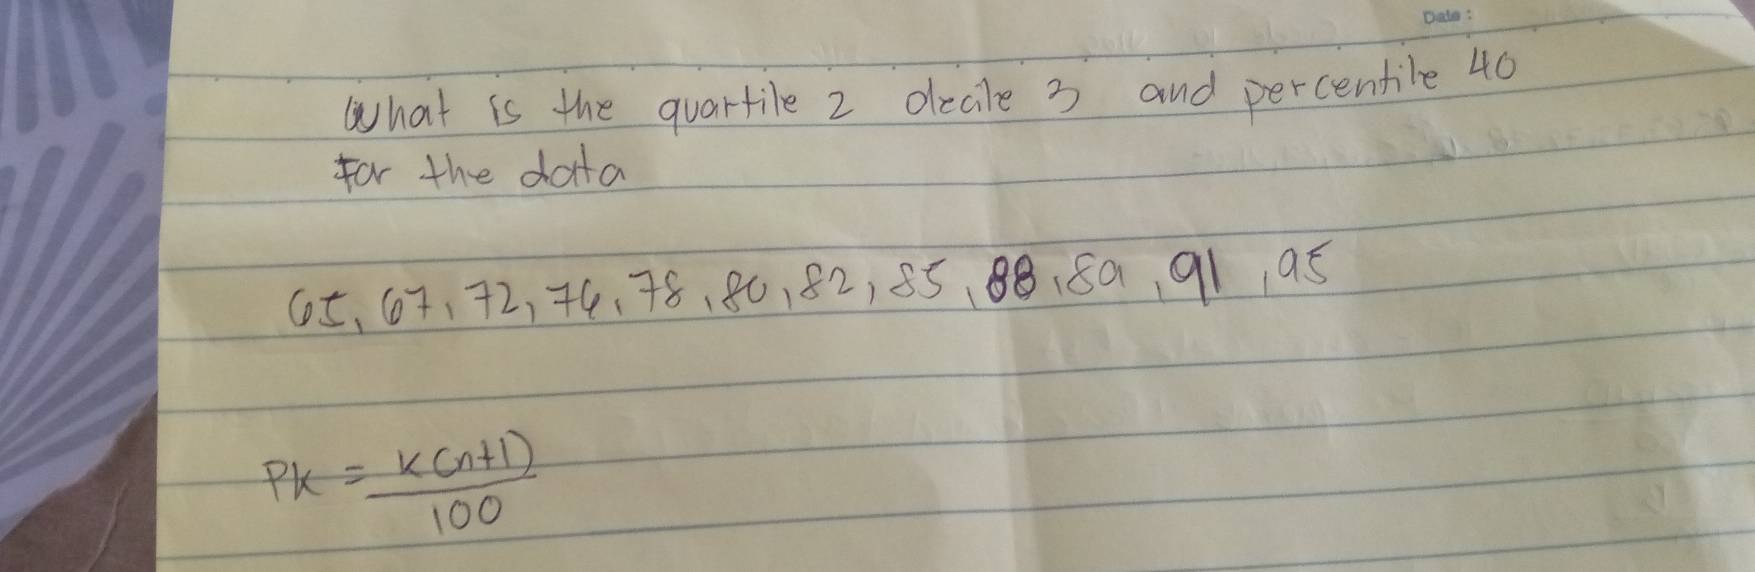 Date:
What is the quartile 2 decile 3 and percentile 40
For the data
65, 67, 72, 76, 78, 80, 82, 85, 88, 89, 91, 95
Pk = K(n+1)
100